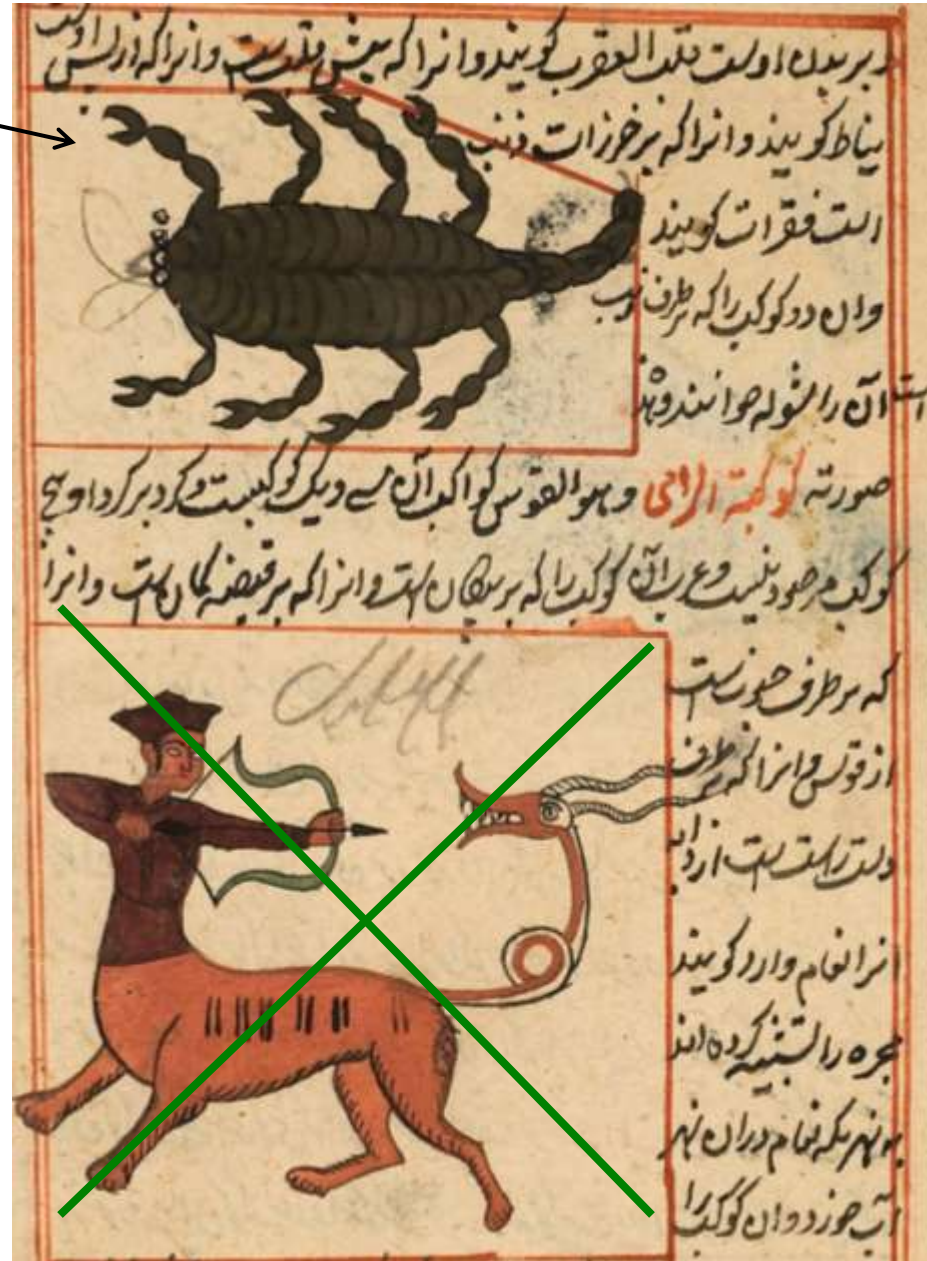 بر بدن اوست قلب العقرب کویند و انرا که پیش قلبست و انرا که از پس
نیاط کویند و انرا که بر خرزات ذنب
است فقرات کویند
وان دو کوکب را که بر طرف ذنب
است آن را شوله خوانند و هذ
صورته کوکبة الرامی و هو القوس کواکب آن سے و یک کوکبست و کرد بر کرد او هیچ
کوکب مرصود نیست و عرب آن کوکب را که بر پیکان است و انرا که بر قبضه کمان است و انرا
که بر طرف جنوبیست
از قوس و انرا که بر طرف
دست راست است از دابه
انرا نعام وارد کویند
مجره را تشبیه کرده اند
بنهر یکه نعام دران نهر
آب خورد و وان کوکب را